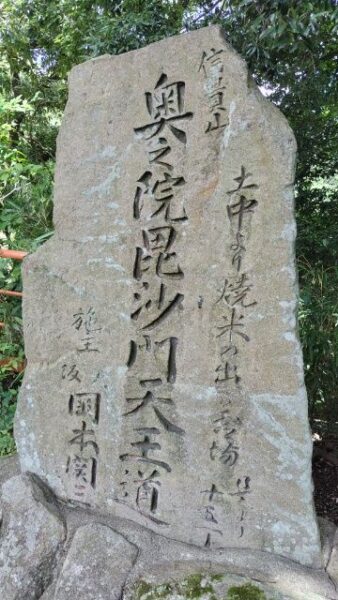 信貴山
土中より焼米の出る霊場
是より十五丁
奥之院毘沙門天王道
施主 大阪
岡本関二